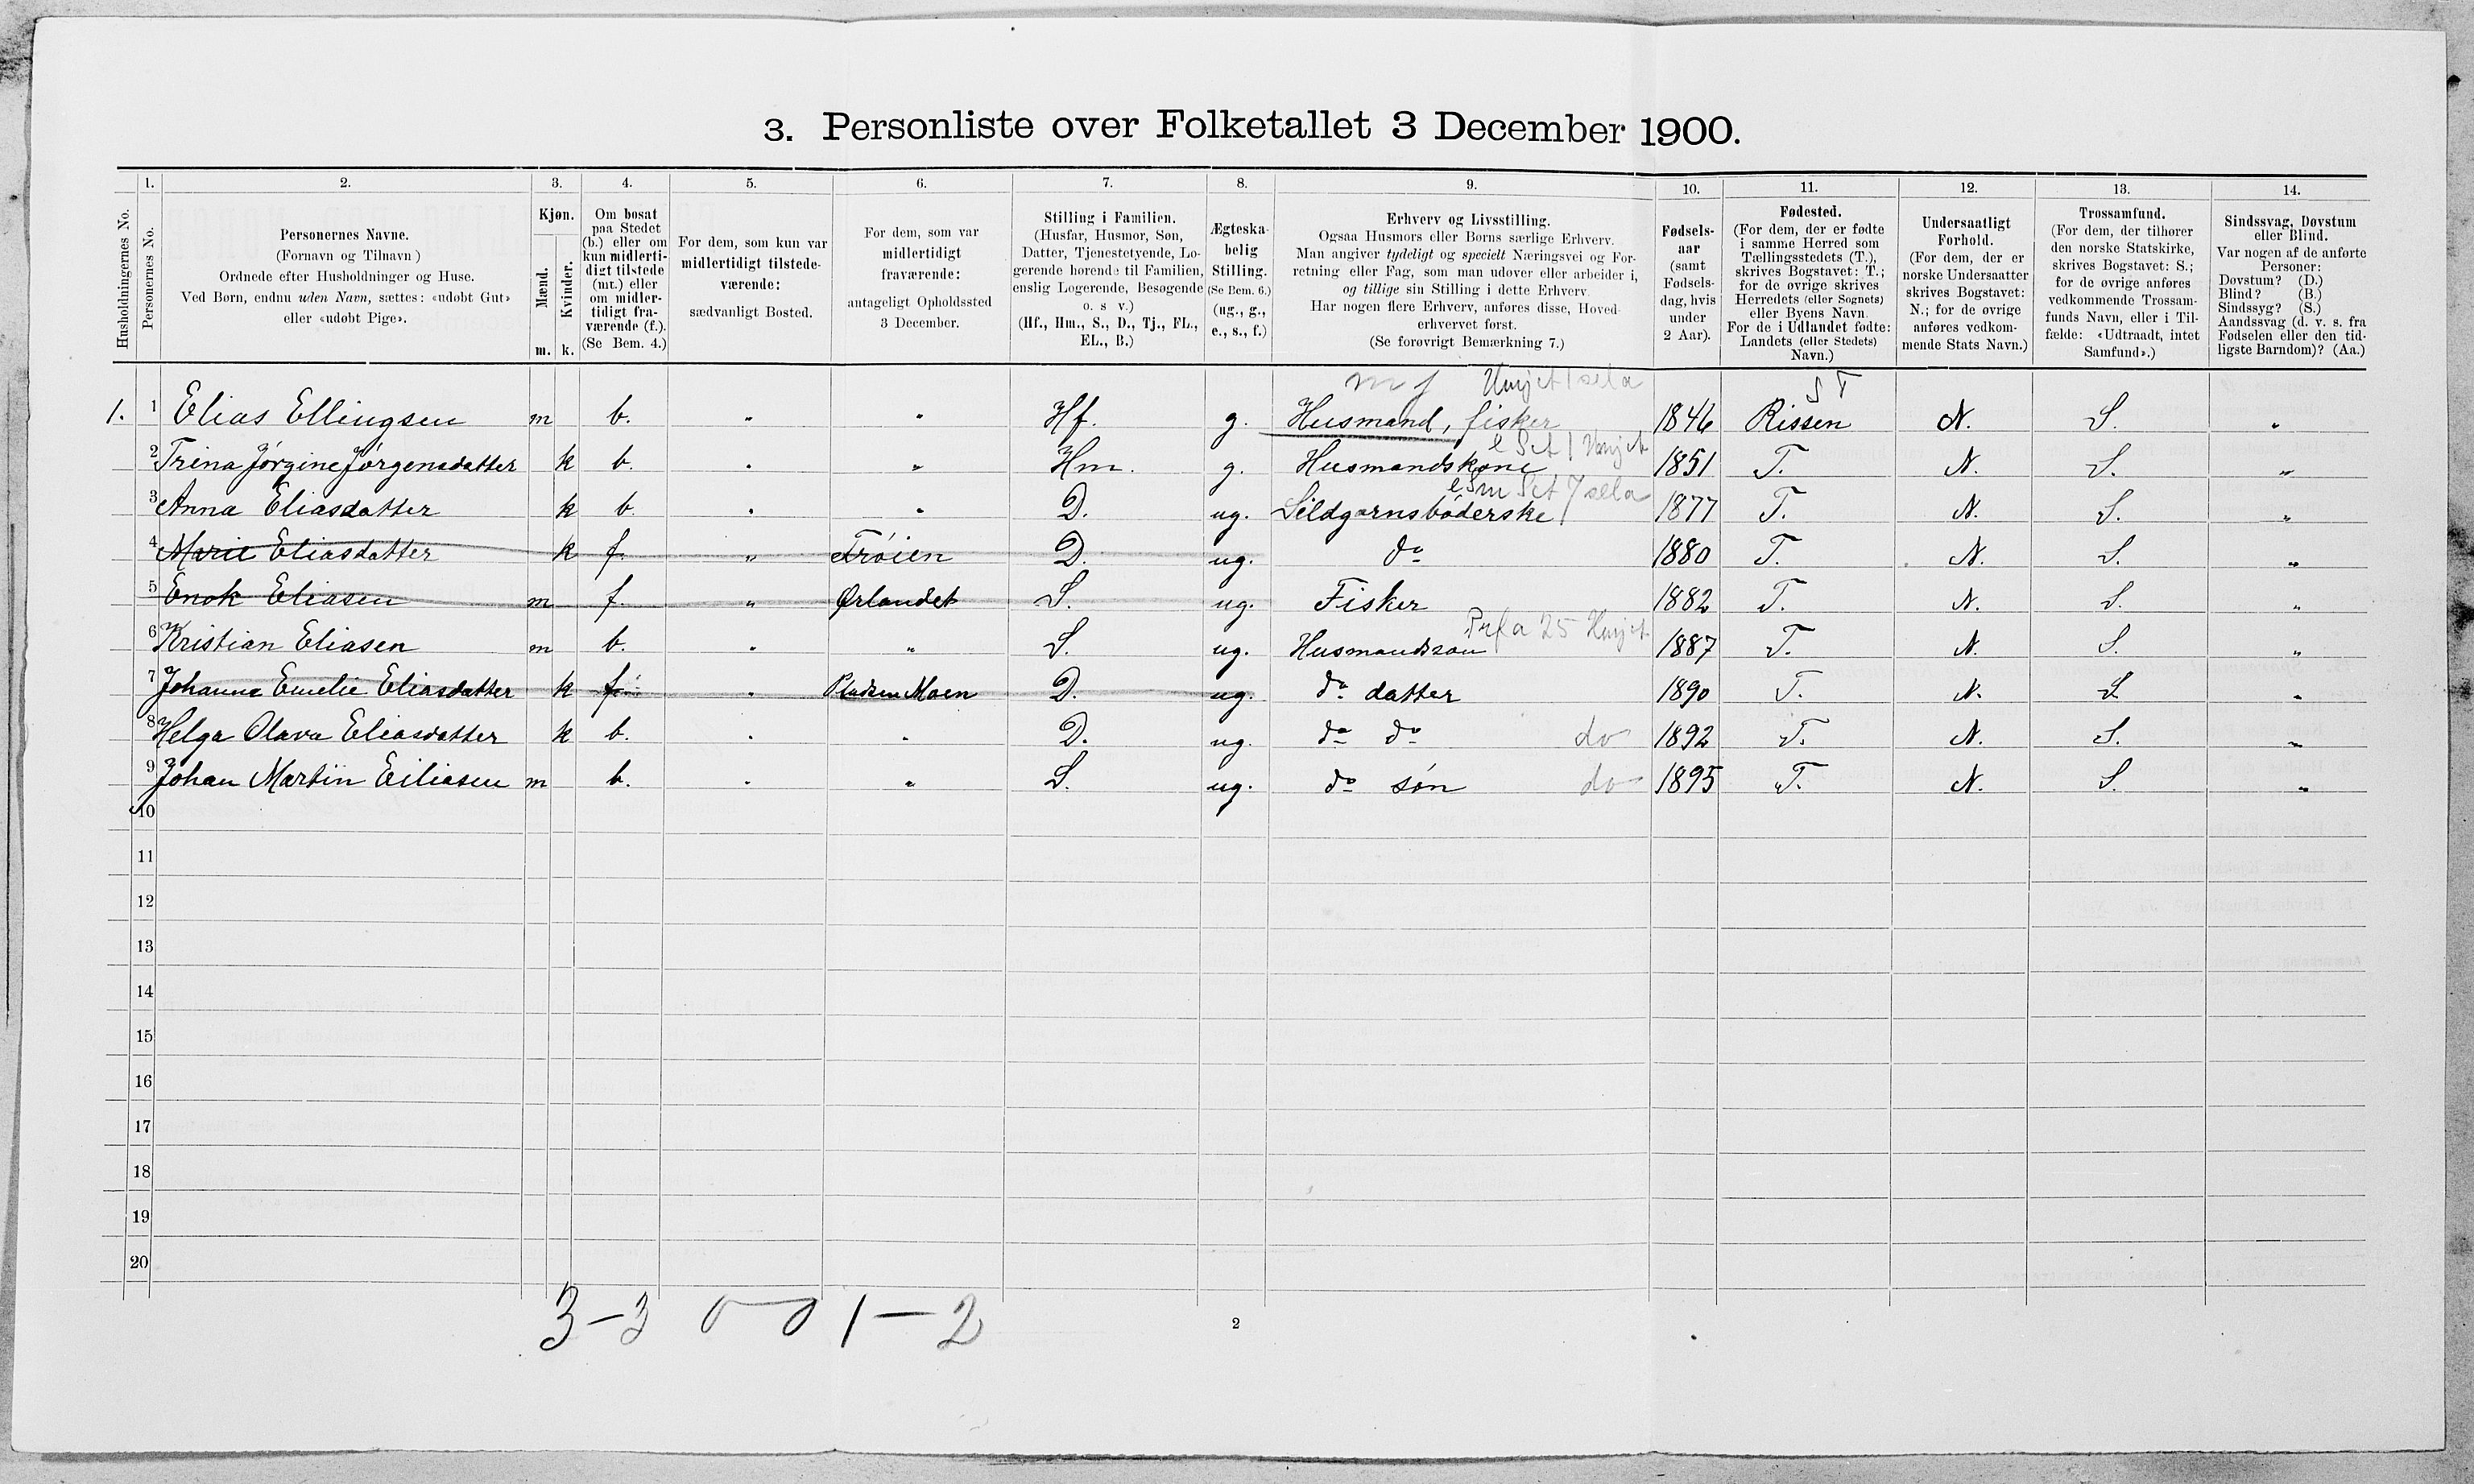 3. Personliste over Folketallet 3 December 1900.
1. 2. 3. 4. 5. 6. 7. 8. 9. 10. 11. 12. 13. 14.
Husholdningernes No.
Personernes No.
Personernes Navne.
(Fornavn og Tilnavn)
Ordnede efter Husholdninger og Huse.
Ved Børn, endnu uden Navn, sættes: «udøbt Gut»
eller «udøbt Pige».
Kjøn.
Mænd.
Kvinder.
m. k.
Om bosat
paa Stedet
(b.) eller om
kun midlerti-
digt tilstede
(mt.) eller
om midler-
tidigt fra-
værende (f.).
(Se Bem. 4.)
For dem, som kun var
midlertidigt tilstede-
værende:
sædvanligt Bosted.
For dem, som var
midlertidigt
fraværende:
antageligt Opholdssted
3 December.
Stilling i Familien.
(Husfar, Husmor, Søn,
Datter, Tjenestetyende, Lo-
gerende hørende til Familien,
enslig Logerende, Besøgende
o. s v.)
(Hf., Hm., S., D., Tj., FL.,
EL., B.)
Ægteska-
belig
Stilling.
(Se Bem. 6.)
(ug., g.,
e., s., f.)
Erhverv og Livsstilling.
Ogsaa Husmors eller Børns særlige Erhverv.
Man angiver tydeligt og specielt Næringsvei og For-
retning eller Fag, som man udøver eller arbeider i,
og tillige sin Stilling i dette Erhverv.
Har nogen flere Erhverv, anføres disse, Hoved-
erhvervet først.
(Se forøvrigt Bemærkning 7.)
Fødsels-
aar
(samt
Fødsels-
dag, hvis
under
2 Aar).
Fødested.
(For dem, der er fødte
i samme Herred som
Tællingsstedets (T.),
skrives Bogstavet: T.;
for de øvrige skrives
Herredets (eller Sognets)
eller Byens Navn.
For de i Udlandet fødte:
Landets (eller Stedets)
Navn.)
Undersaatligt
Forhold.
(For dem, der er
norske Undersaatter
skrives Bogstavet:
N.; for de øvrige
anføres vedkom-
mende Stats Navn.)
Trossamfund.
(For dem, der tilhører
den norske Statskirke,
skrives Bogstavet: S.;
for de øvrige anføres
vedkommende Trossam-
funds Navn, eller i Til-
fælde: «Udtraadt, intet
Samfund».)
Sindssvag, Døvstum
eller Blind.
Var nogen af de anførte
Personer:
Døvstum? (D.)
Blind? (B.)
Sindssyg? (S.)
Aandssvag (d. v. s. fra
Fødselen eller den tid-
ligste Barndom)? (Aa.)
1. 1 Elias Ellingsen m b. " " Hf. g. Husmand, fisker 1846 Rissen N. S. "
2 Trina Jørgine Jørgensdatter k b. " " Hm. g. Husmandskone 1851 T. N. S. "
3 Anna Eliasdatter k b. " " D. ug. Sildgarnsbøderske 1877 T. N. S. "
4 Marie Eliasdatter k f. " Trøien D. ug. do 1880 T. N. S. "
5 Enok Eliasen m f. " Ørlandet S. ug. Fisker 1882 T. N. S. "
6 Kristian Eliasen m b. " " S. ug. Husmandssøn 1887 T. N. S. "
7 Johanne Emelie Eliasdatter k f. " Pladsen Moen D. ug. do datter 1890 T. N. S. "
8 Helga Olava Eliasdatter k b. " " D. ug. do do do 1892 T. N. S. "
9 Johan Martin Eiliasen m b. " " S. ug. do søn do 1895 T. N. S. "
10
11
12
13
14
15
16
17
18
19
20
3-3 0-0 1-2
2